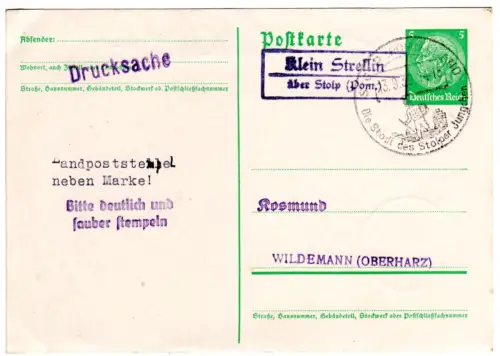 Absender:
Postkarte
5
5
Drucksache
Klein Strellin
über Stolp (Pom.)
Deutsches Reich
Straße, Hausnummer, Gebäudeteil, Stockwerk od. Postschließfachnummer
Die Stadt des Stolper Jungchen
neben Marke!
Bitte deutlich und
sauber stempeln
Rosmund
WILDEMANN (OBERHARZ)
Straße, Hausnummer, Gebäudeteil, Stockwerk oder Postschließfachnummer